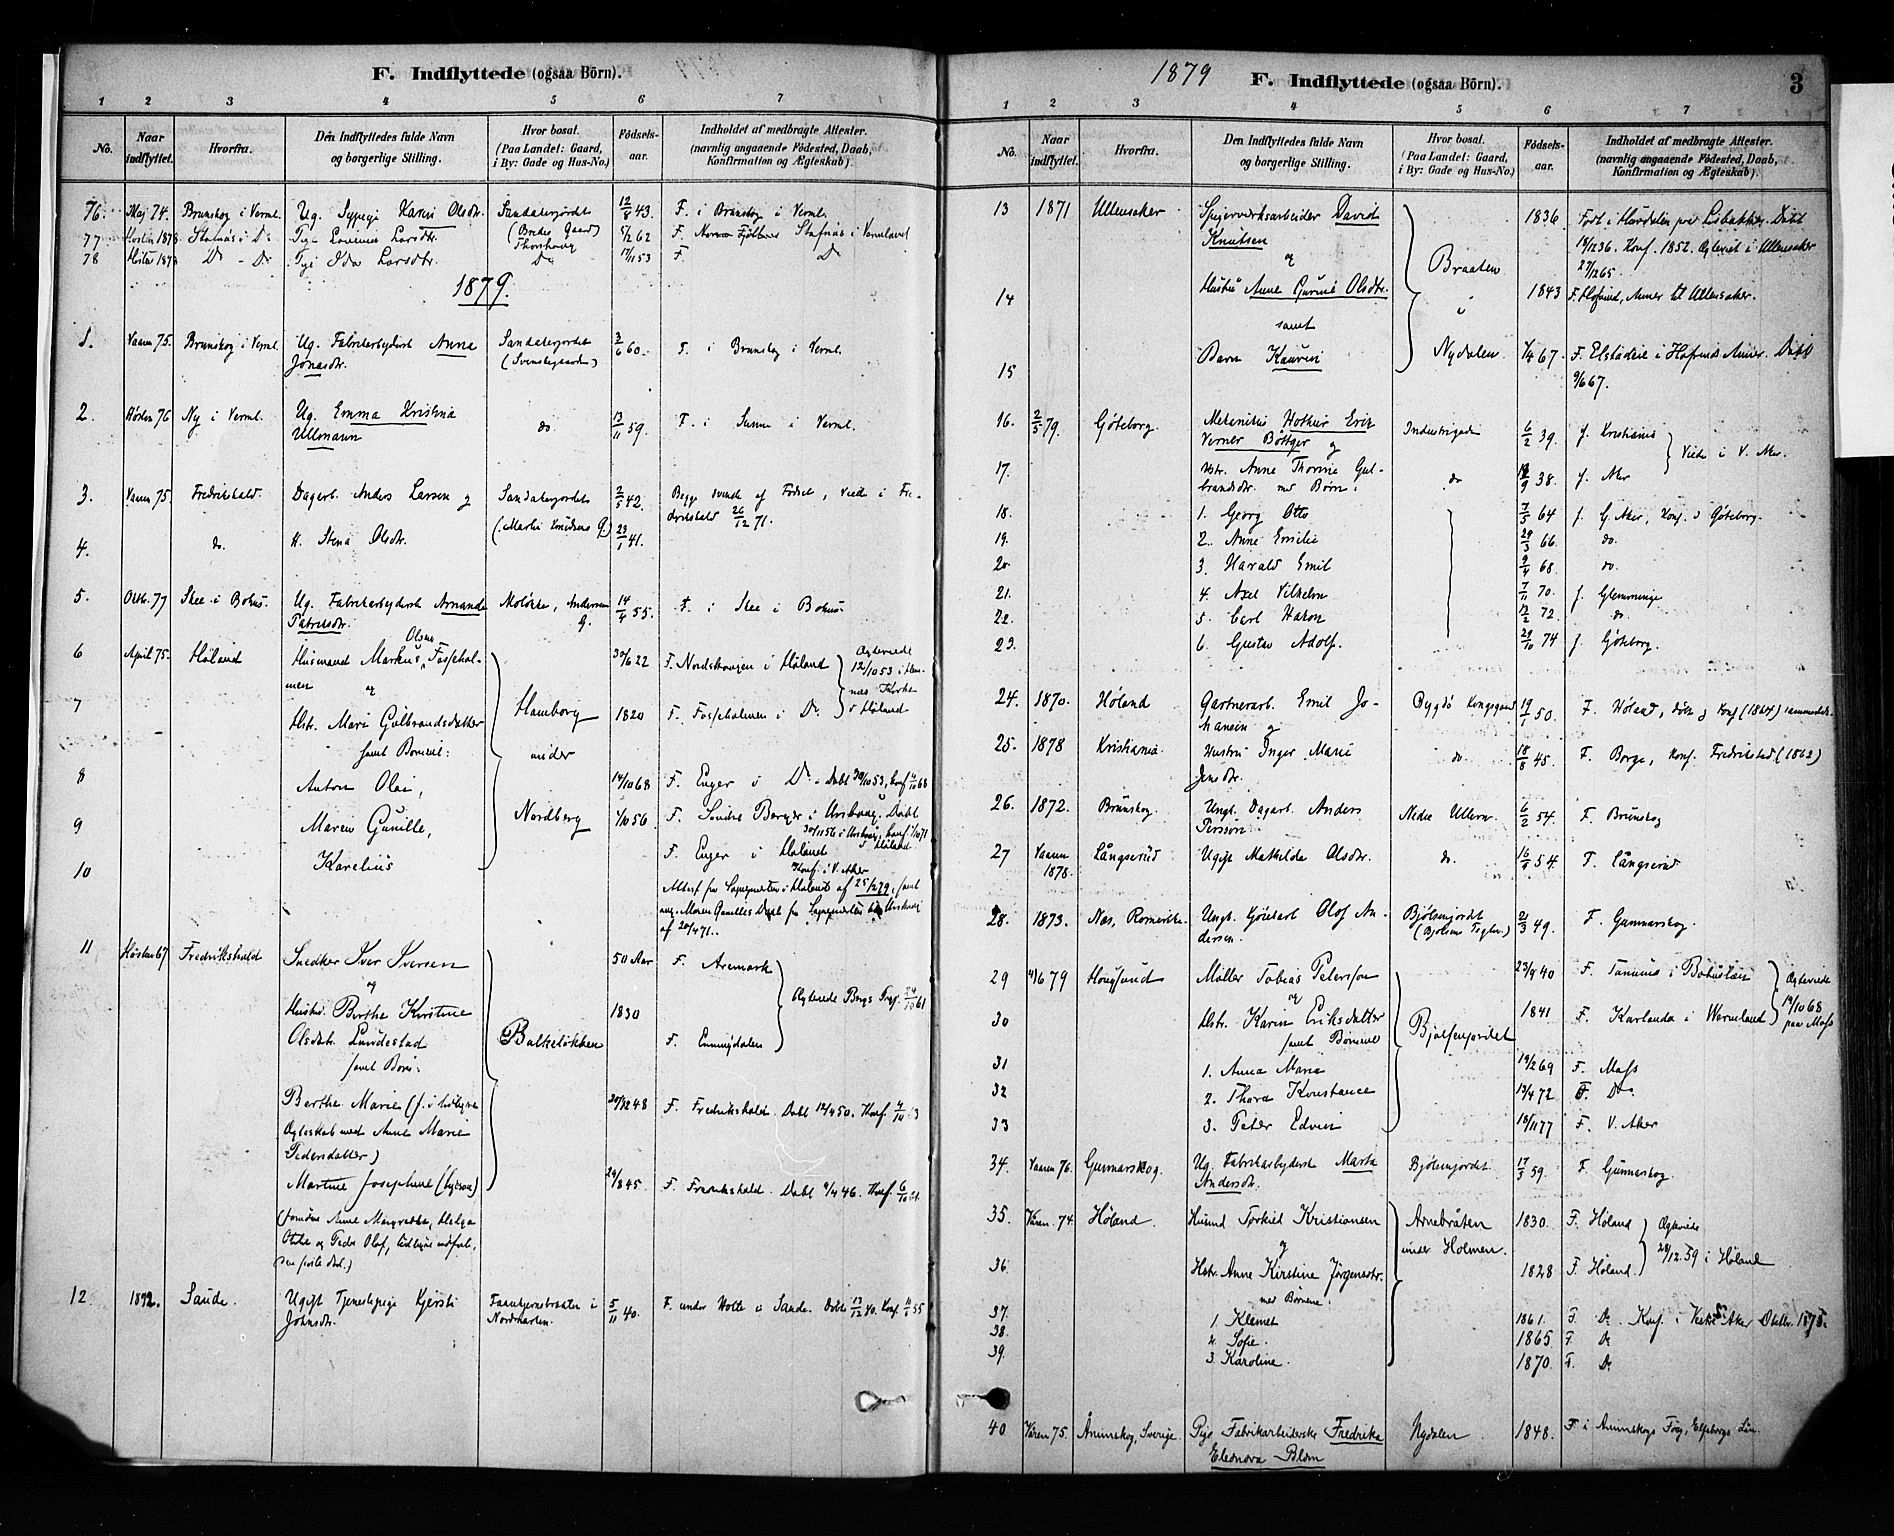 F. Indflyttede (ogsaa Börn).
1 2 3 4 5 6 7
No.
Naar indflyttet.
Hvorfra.
Den Indflyttedes fulde Navn og borgerlige Stilling.
Hvor bosat. (Paa Landet: Gaard, i By: Gade og Hus-No.)
Fødsels-aar.
Indholdet af medbragte Attester. (navnlig angaaende Fødested, Daab, Konfirmation og Ægteskab).
76. Maj 74. Brunskog i Verml. Ug. Sypige Karin Olsdtr. Sandakerjordet 12/8 43. F. i Brunskog i Verml.
(Bredes Gaard)
77 Hosten 1878 Stafnäs i Do Pige Lovenia Larsdtr. Thorshoug 5/2 62 F. Stafnäs i Vermland
78 Hosten 1878 Do - Do Pige Ida Larsdtr. Do 17/11 53 F. Do
1879.
1. Vaaren 75. Brunskog i Verml. Ug. Fabrikarbejderske Anna Sandakerjordet 3/6 60. F. i Brunskog i Verml.
Jonasdtr. (Svenskegaarden)
2. Høsten 76 Ny i Verml. Ug. Emma Kristina do 13/11 59. F. i Sunne i Verml.
Ullmann
3. Vaaren 75. Fredrikshald. Dagarb. Anders Larsen og Sandakerjordet 2/5 42. Begge svenske af Fødsel, viede i Fre-
(Martin Knudsens G.) drikshald 26/12 71.
4. do. H. Stena Olsdtr. 23/1 41.
5. Oktb. 77 Skee i Bohus. Ug. Fabrikarbejderske Amanda Moløkke, Andersens 14/4 55. F. i Skee i Bohus.
Patriksdtr. G.
6 April 75. Høland Husmand Markus Olsen Fosshol- 30/6 22 F. Nordskougen i Høland Ægteviede
men og 12/10 53 i Hem-
næs Kirke
7 Hstr. Mari Gulbrandsdatter Hamborg 1820 F. Fossholmen i Do. i Høland
samt Børnene: under
8 Anton Olai, 14/10 68 F. Enger i Do.
9 Maren Gunille, Nordberg 1/10 56 F. Søndre Berger i Urskoug. Døbt
30/11 56 i Urskoug, konf. 1/10 71
i Høland
10 Karelius F. Enger i Høland
Konf. i V. Aker
Attest fra Sognepresten i Høland af 25/2 79, samt
ang. Maren Gunilles Daab fra Sognepresten til Urskoug
af 20/4 71.
11 Høsten 67 Fredrikshald Snedker Iver Iversen 50 Aar F. Aremark
og
Hustru Berthe Kirstine 1830 Ægteviede Bergs Prgj. 24/10 61
Olsdtr. Lundestad Balkeløkken F. Enningdalen
samt Børn:
Berthe Marie (f. i tidligere 20/12 48 F. Fredrikshald. Døbt 12/4 50. Konf. 4/10 63
Ægteskab med Anne Marie
Pedersdatter)
Martine Josephine 29/8 45. F. Fredrikshald. Døbt 9/4 46. Konf. 6/10 61.
12. 1872. Sande. Ugift Tjenestepige Kjersti Faanhjernsbraaten i 5/11 40. F. under Holte i Sande. Døbt 13/12 40. Konf. 10/6 55
Johnsdtr. Nordmarken.
1879
F. Indflyttede (ogsaa Börn).
3
1 2 3 4 5 6 7
No.
Naar indflyttet.
Hvorfra.
Den Indflyttedes fulde Navn og borgerlige Stilling.
Hvor bosat. (Paa Landet: Gaard, i By: Gade og Hus-No.)
Fødsels-aar.
Indholdet af medbragte Attester. (navnlig angaaende Födested, Daab, Konfirmation og Ægteskab).
13 1871 Ullensaker Spigerværksarbeider David 1836. Født i Hurdalen
Knutsen 18/12 36. Konf. 1852. Ægteviet i Ullensaker
og Braaten 27/12 65.
14 Hustru Anne Gurine Olsdtr. i 1843 F. Hofvind, Annex til Ullensaker.
samt
15 Barn Kaurin Nydalen 1/4 67. F. Elstadeie i Hofvinds Annex. Døbt
9/6 67.
16. 2/5 79. Göteborg. Mekanikus Hothur Erik Industrigade 6/2 39. f. Kristiania
Verner Böttger og Viede i V. Aker.
17. Hstr. Anne Thorine Gul- do 18/9 38. f. Aker
brandsdtr. med Børn:
18. 1. Georg Otto 7/5 64 f. G. Aker, konf. i Göteborg.
19. 2. Anne Emilie 29/3 66 do.
20. 3. Harald Emil 9/4 68. do.
21. 4. Axel Vilhelm 7/11 70. f. Glemminge
22. 5. Carl Hakon 12/2 72. do.
23. 6. Gustav Adolf. 29/10 74 f. Göteborg.
24. 1870. Høland Gartnerarb. Emil Jo- Bygdø Kongsgaard 19/1 50. F. Höland, døbt og konf (1864) sammesteds.
hansen og
25. 1878 Kristiania. Hustru Inger Marie do. 18/8 45. F. Borge, konf. Fredrikstad (1862)
Jensdtr.
26. 1872. Brunskog Ungk. Dagarb. Anders Nedre Ullern 6/2 54. F. Brunskog
Persson.
27 Vaaren Långserud Ugift Mathilde Olsdtr. do. 16/5 54. F. Långserud
1878.
28. 1873. Næs, Romerike. Ungk. Gjörtlerarb Olof An- Bjølsenjordet 21/3 49. F. Gunnarskog.
dersen.
29 4/6 79 Hougsund Møller Tobias Peterson 23/9 40 F. Tanum i Bohuslän Ægteviede
og 19/10 68
30 Hstr. Karin Eriksdatter Bjølsenjordet 1841 F. Karlanda i Wermland paa Moss
samt Børnene
31 1. Anna Maria 19/2 69 F. Moss
32 2. Thora Konstance 13/4 72 F. Do.
33 3. Peter Edvin 18/11 77 F. V. Aker
34. Vaaren 76. Gunnarskog. Ug. Fabrikarbejderske Marta Bjølsenjordet. 17/3 59. F. Gunnarskog.
Andersdr.
35. Våren 74. Höland. Husmd Torkild Kristiansen Arnebråten 1830. F. Höland Ægteviede
og under Holmen. 28/12 59 i Höland
36 Hstr. Anne Kirstine Jörgensdtr. 1828 F. Höland.
med Børnene:
37. 1. Klemet 1861. F. Do. Konf. i Vestre Aker Oktbr. 1875.
38. 2. Sofie. 1865 F. Do
39. 3. Karoline. 1870. F. Do
40 Våren 75. Ånimskog, Sverige. Pige Fabrikarbeiderske Fredrika Nydalen 1848. F. i Ånimskogs Förs, Elfsborgs Län.
Eleonora Blom